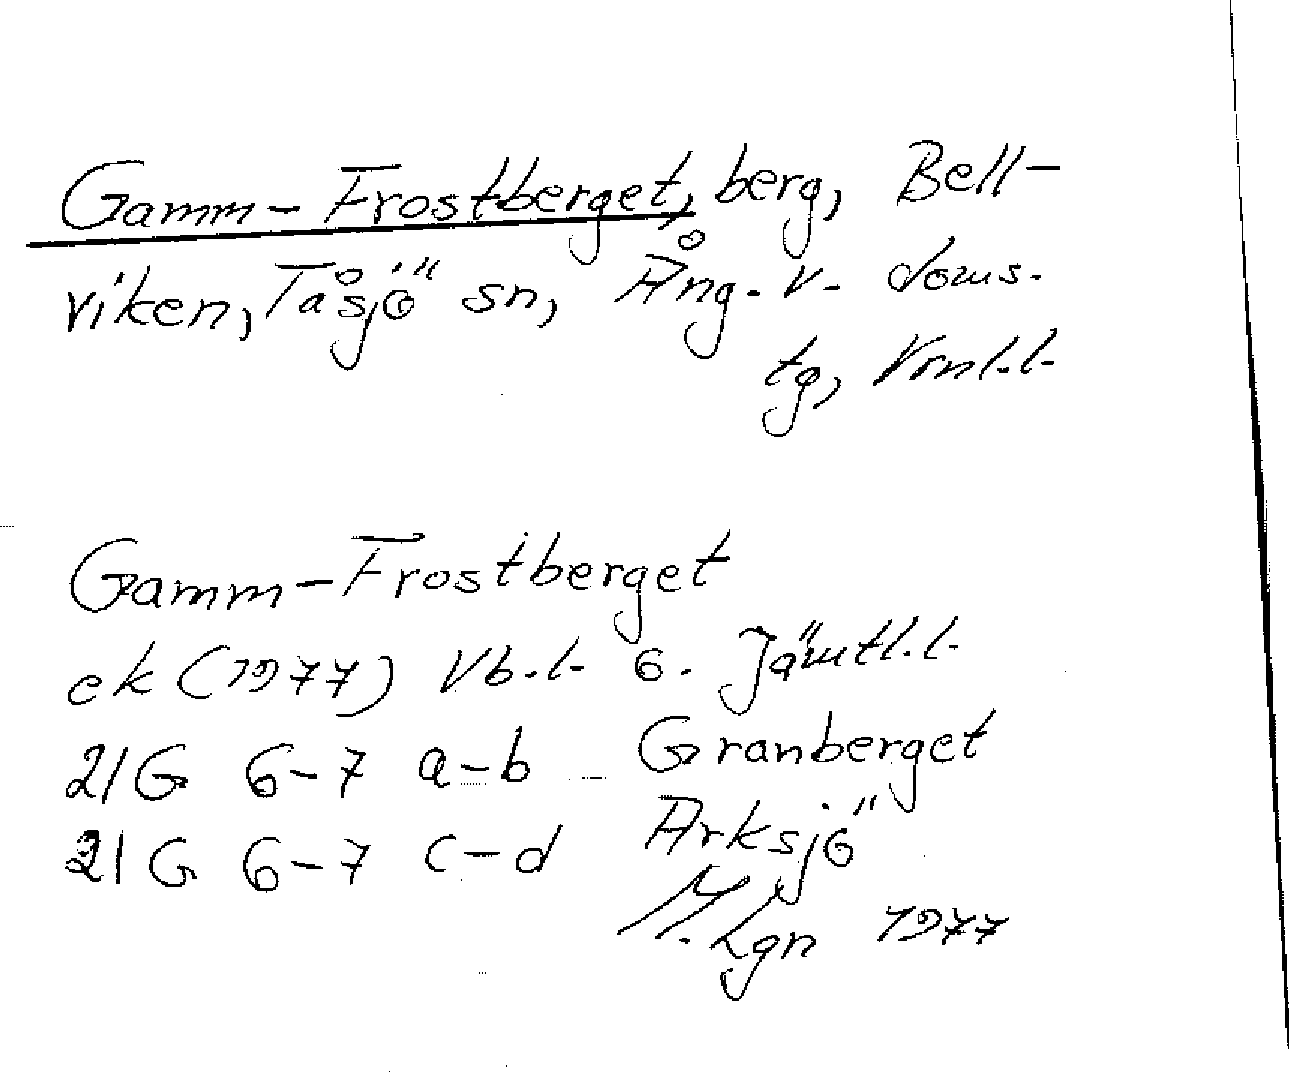 Gamm-Frostberget, berg, Bell-
viken, Tåsjö sn, Ång. v. doms.
tg, Vnl.l.
Gamm-Frostberget
ek (1977) Vb.l. 6. Jämtl.l.
21G 6-7 a-b Granberget
21G 6-7 c-d Arksjö
M. Lgn 1977